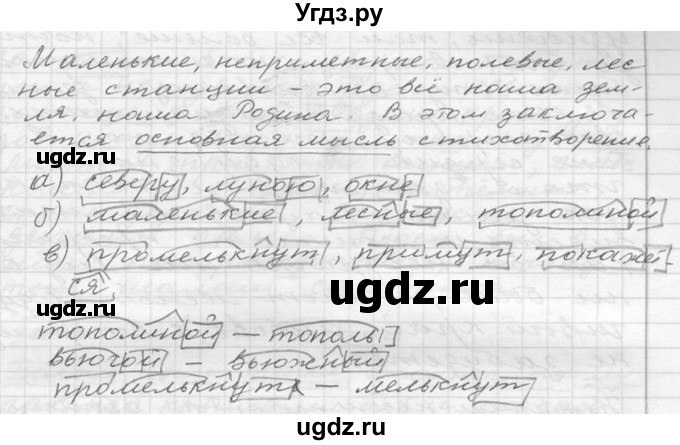 Угдз.ру
Маленькие, неприметные, полевые, лес
ные станции – это всё наша зем-
ля, наша Родина. В этом заключа-
ется основная мысль стихотворение.
ugdz.ru
ugdz.ru
а) северу, луною, окне
б) маленькие, лесные, тополиной
в) промелькнут, примут, покаже-
ugdz.ru
ugdz.ru
ся
ugdz.ru
тополиной – тополь
вьюгой – вьюжный
промелькнут – мелькнут
ugdz.ru
ugdz.ru